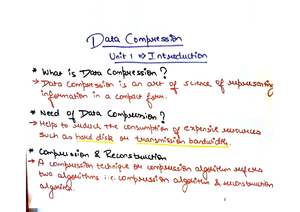 Data Compression
Unit 1 ⇒ Introduction
* What is Data Compression?
→ Data Compression is an art of science of representing
information in a compact form.
* Need of Data Compression?
→ Helps to reduce the consumption of expensive resources
such as hard disk or transmission bandwidth.
* Compression & Reconstruction
→ A compression technique or compression algorithm refers
two algorithms i.e. compression algorithm & reconstruction
algorithm.